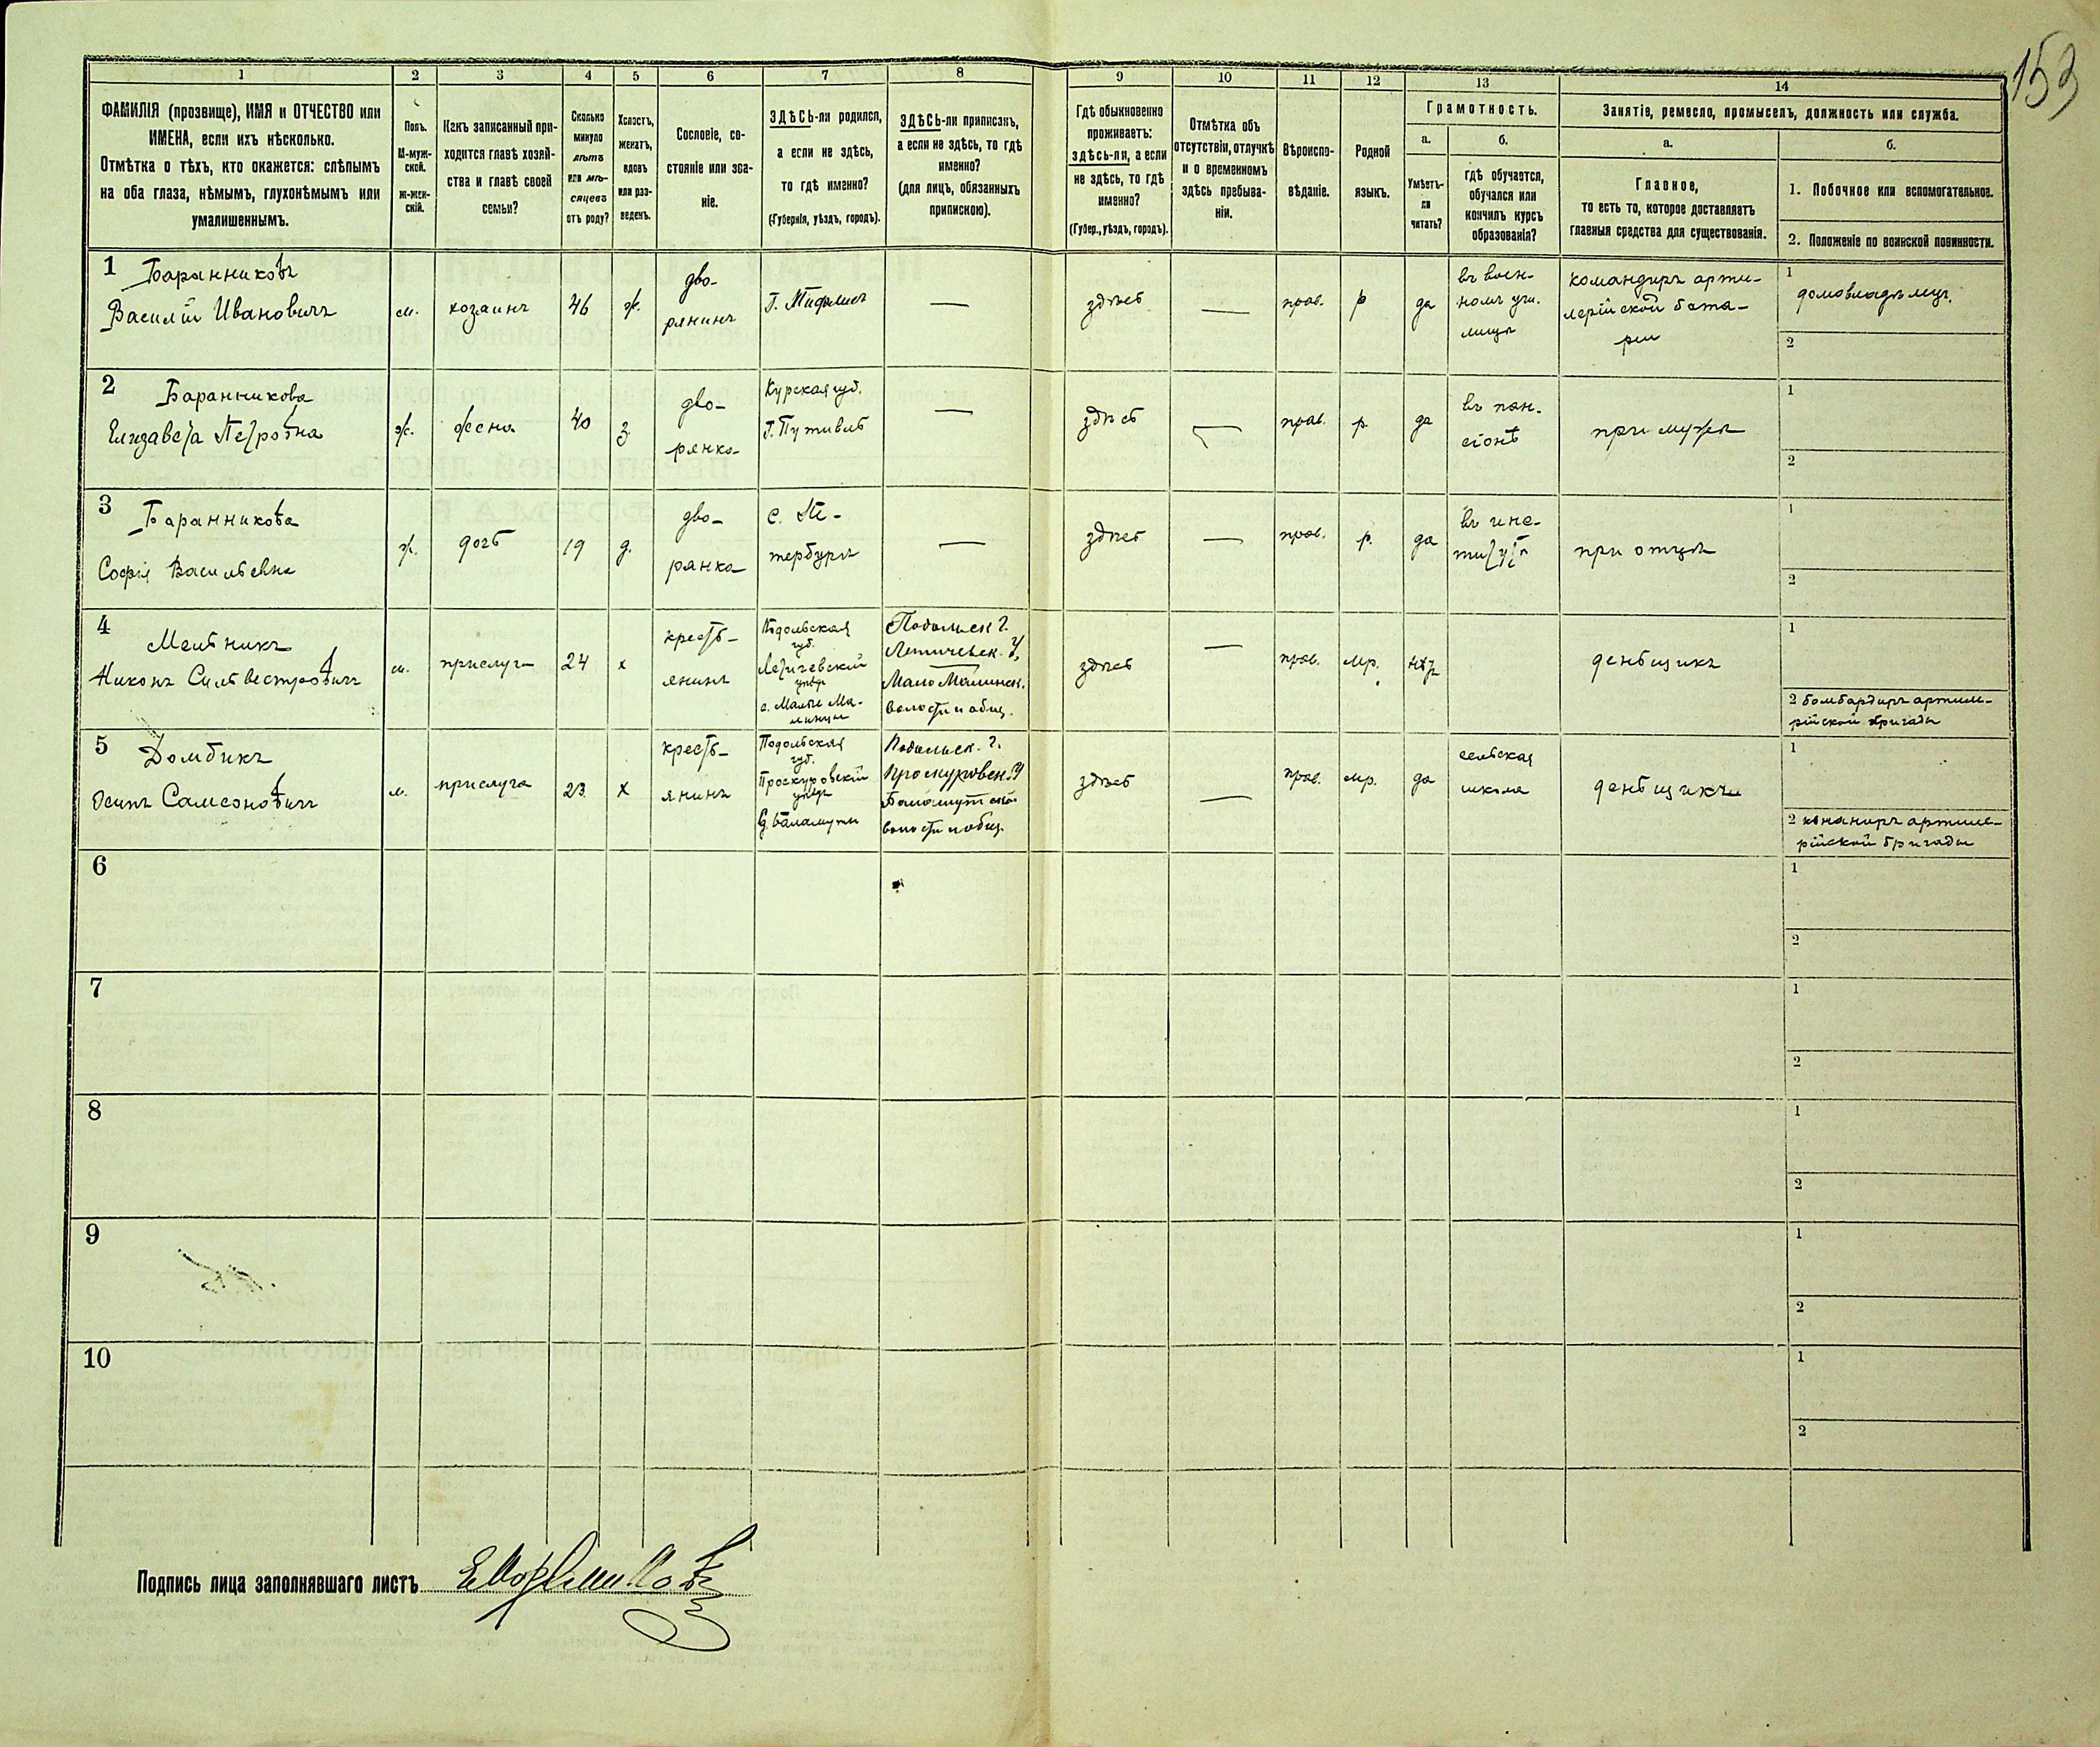 153
1 2 3 4 5 6 7 8 9 10 11 12 13 14
ФАМИЛІЯ (прозвище), ИМЯ и ОТЧЕСТВО или
ИМЕНА, если ихъ нѣсколько.
Отмѣтка о тѣхъ, кто окажется: слѣпымъ
на оба глаза, нѣмымъ, глухонѣмымъ или
умалишеннымъ.
Полъ.
М-муж-
ской.
ж-жен-
скій.
Какъ записанный при-
ходится главѣ хозяй-
ства и главѣ своей
семьи?
Сколько
минуло
лѣтъ
или мѣ-
сяцевъ
отъ роду?
Холостъ,
женатъ,
вдовъ
или раз-
веденъ.
Сословіе, со-
стояніе или зва-
ніе.
ЗДѢСЬ-ли родился,
а если не здѣсь,
то гдѣ именно?
(Губернія, уѣздъ, городъ).
ЗДѢСЬ-ли приписанъ,
а если не здѣсь, то гдѣ
именно?
(для лицъ, обязанныхъ
припискою).
Гдѣ обыкновенно
проживаетъ:
здѣсь-ли, а если
не здѣсь, то гдѣ
именно?
(Губер., уѣздъ, городъ).
Отмѣтка объ
отсутствіи, отлучкѣ
и о временномъ
здѣсь пребыва-
ніи.
Вѣроиспо-
вѣданіе.
Родной
языкъ.
Грамотность.
а.
Умѣетъ-
ли
читать?
б.
гдѣ обучается,
обучался или
кончилъ курсъ
образованія?
Занятіе, ремесло, промыселъ, должность или служба.
а.
Главное,
то есть то, которое доставляетъ
главныя средства для существованія.
б.
1. Побочное или вспомогательное.
2. Положеніе по воинской повинности.
1 Баранниковъ
Василій Ивановичъ
м.
хозаинъ
46
ж.
дво-
рянинъ
Г. Тифлисъ
—
здѣсь
—
прав.
р
да
въ воен-
номъ учи-
лищѣ
командиръ арти-
лерійской бата-
реи
1
домовладѣлецъ.
2
2 Баранникова
Елизавета Петровна
ж.
жена
40
з.
дво-
рянка
Курская губ.
Г. Путивль
—
здѣсь
—
прав.
р.
да
въ пан-
сіонѣ
при мужѣ
1
2
3 Баранникова
Софія Васильевна
ж.
дочь
19
д.
дво-
рянка
С. Пе-
тербургъ
—
здѣсь
—
прав.
р.
да
въ инс-
титутѣ
при отцѣ
1
2
4 Мельникъ
Никонъ Сильвестровичъ
м.
прислуга
24
х
кресть-
янинъ
Подольская
губ.
Летичевскій
уѣздъ
с. Малые Ма-
линцы
Подольск. г.
Летичевск. у,
Мало Малинск.
волости и общ.
здѣсь
—
прав.
мр.
нѣт
деньщикъ
1
2 бомбардиръ артиле-
рійской бригады
5 Домбикъ
Осипъ Самсоновичъ
м.
прислуга
23.
х
кресть-
янинъ
Подольская
губ.
Проскуровскій
уѣздъ
с. Баламуты
Подольск. г.
Проскуровск. у
волости и общ.
здѣсь
—
прав.
мр.
да
сельская
школа
деньщикъ
1
2 кананиръ артиле-
рійской бригады
6
1
2
7
1
2
8
1
2
9
1
2
10
1
2
Подпись лица заполнявшаго листъ